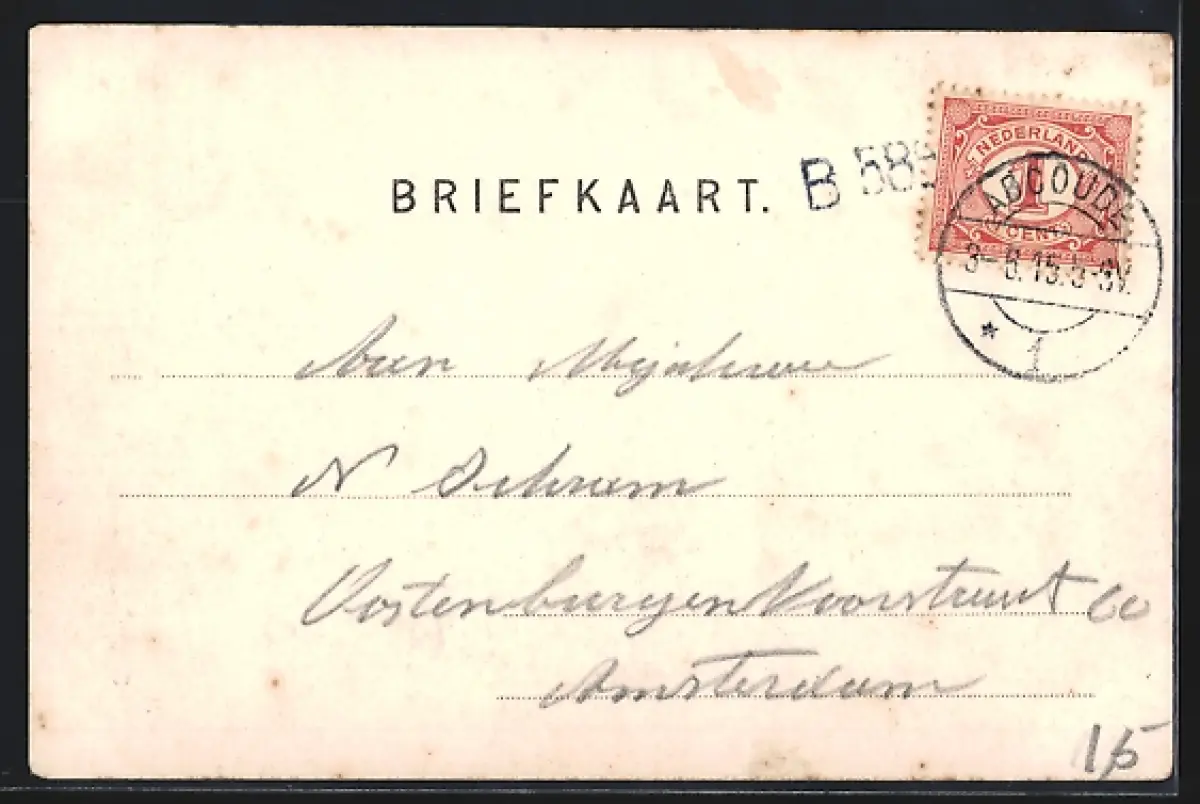 BRIEFKAART.
B 58
NEDERLAND
1
CENT
ABCOUDE
3-8.15.5-6V.
1
Aan Mejuhrouw
N Schram
Oostenburgen Voorstraat 60
Amsterdam
15